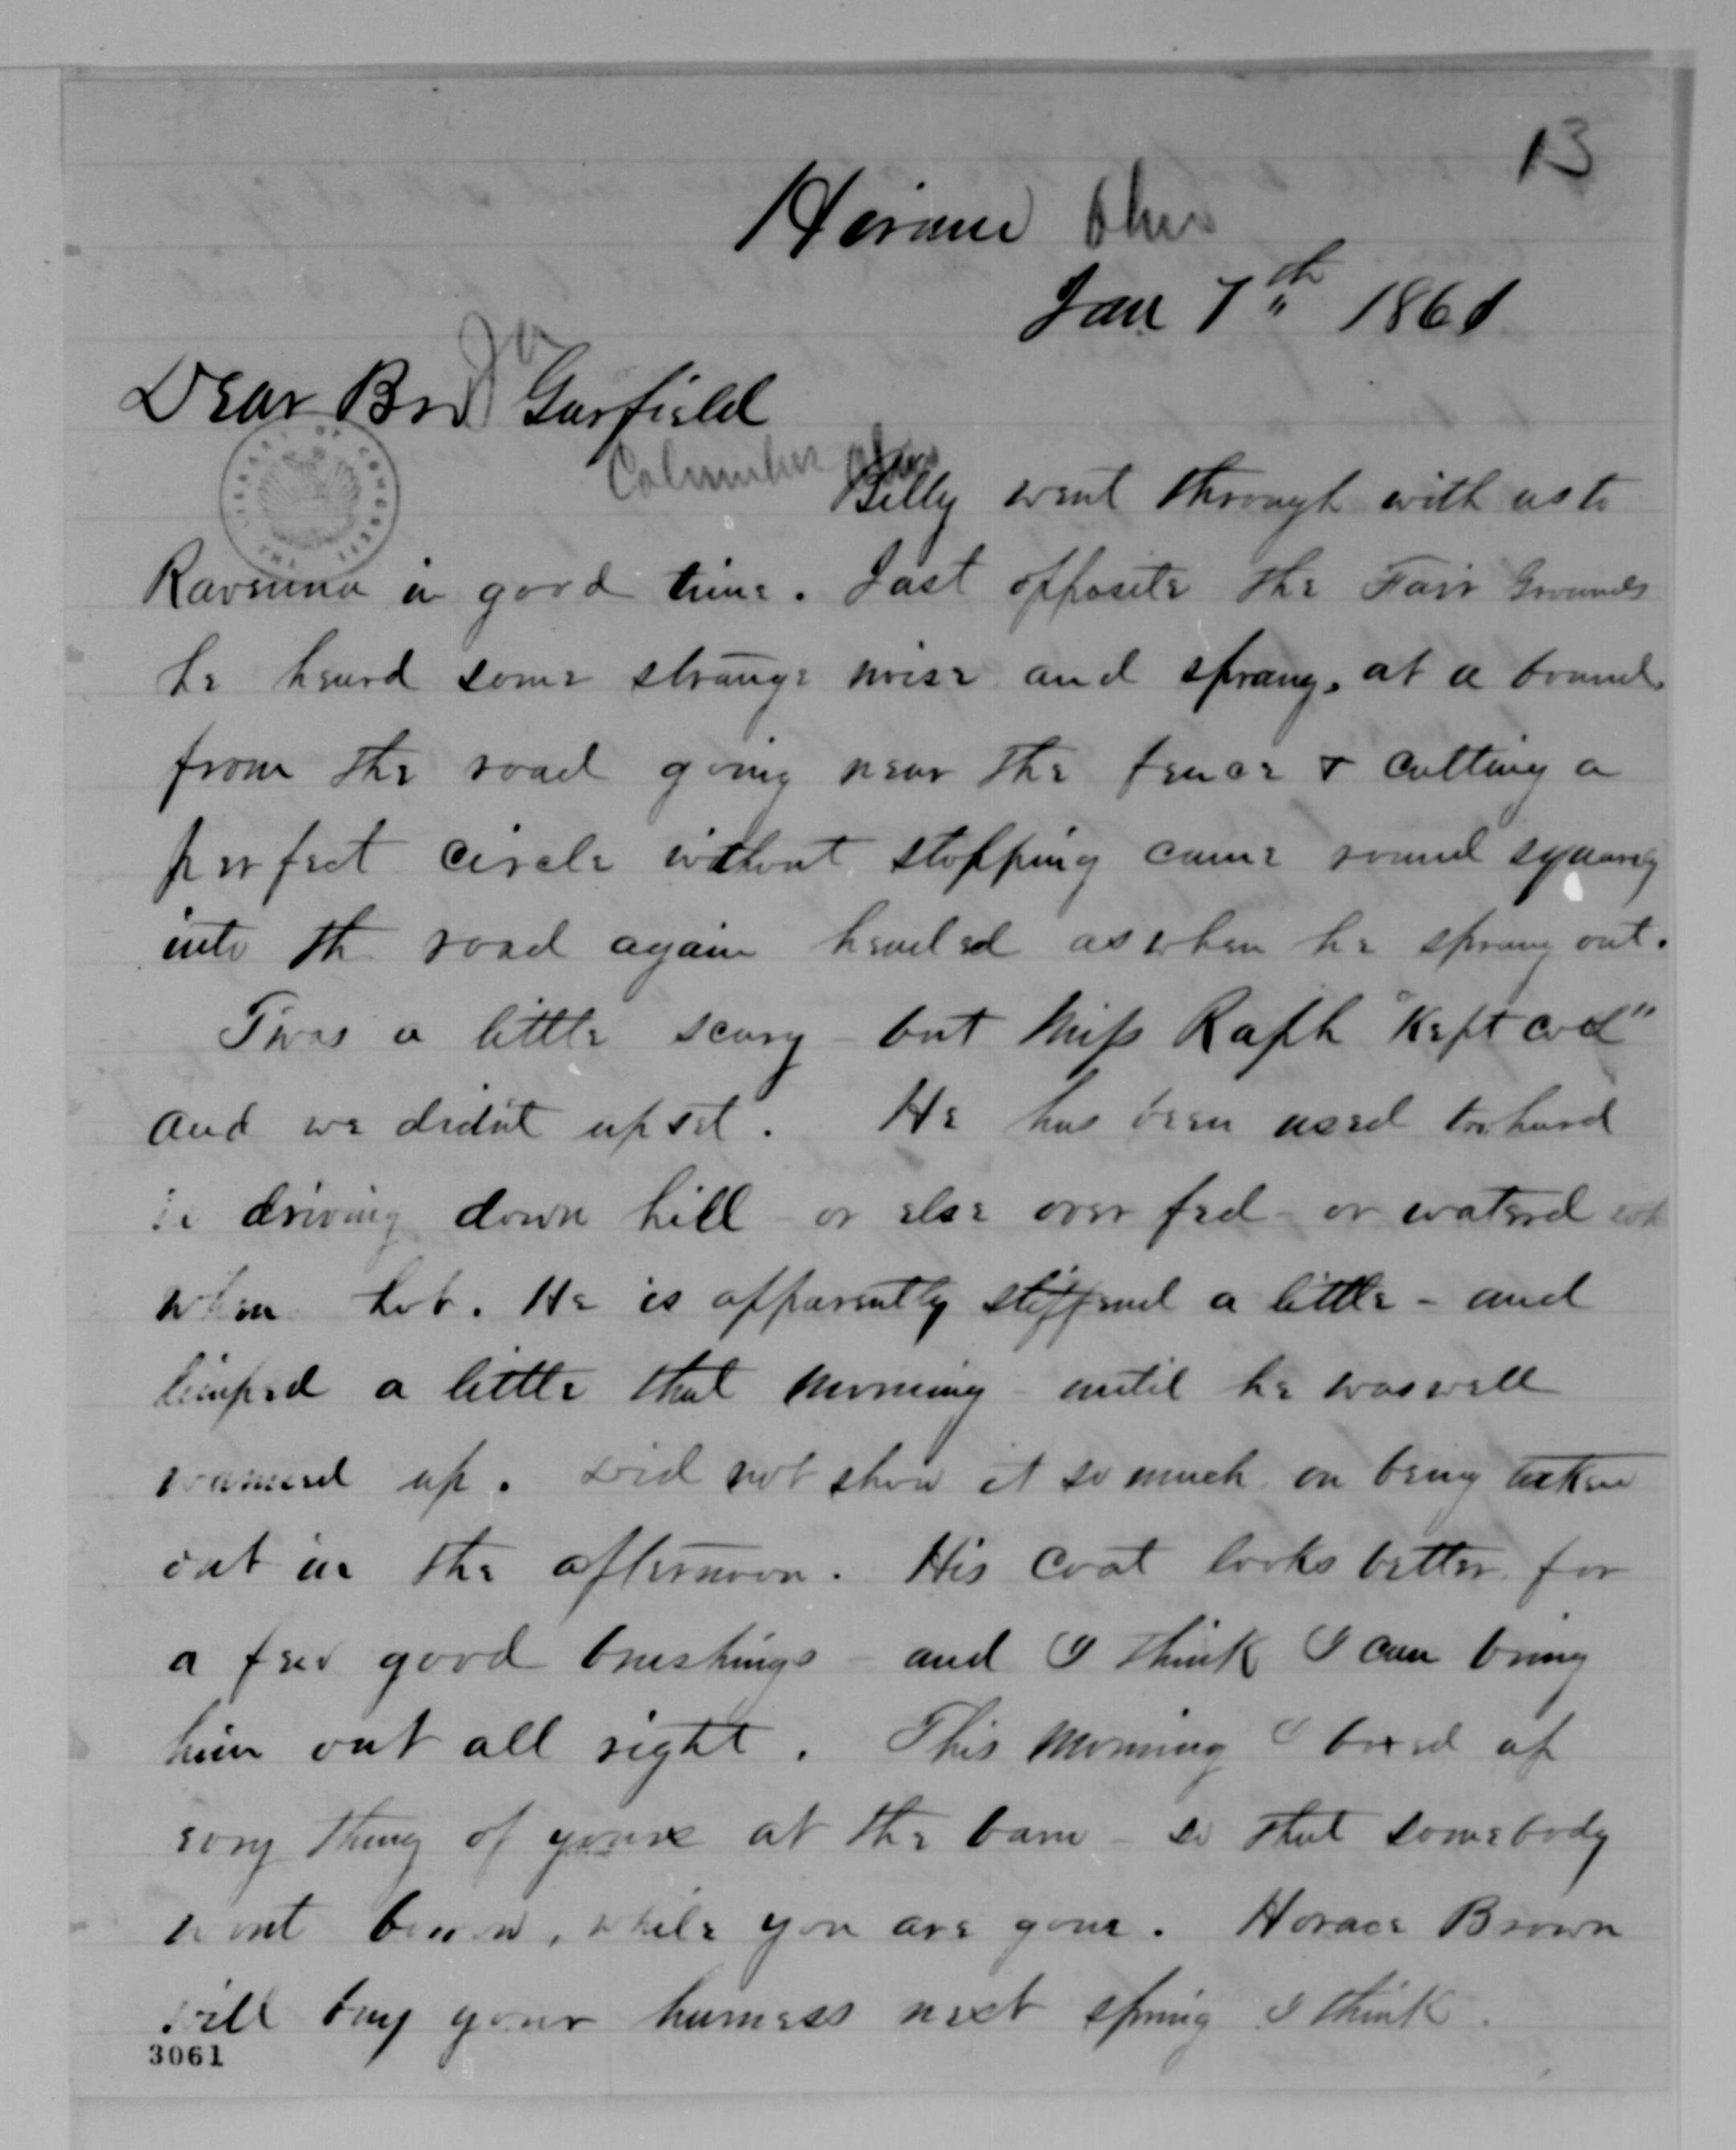 13
Hiram Ohio
Jan 7th 1861
Dear Bro Ja Garfield
Columbus Ohio
Billy went through with us to
Ravenna in good time. Just opposite the Fair Grounds
he heard some strange noise and sprang, at a bound
from the road going near the fence & cutting a
perfect circle without stopping came round squarely
into the road again headed as when he sprang out.
Twas a little scary - but Miss Raph "kept cool"
and we didnt upset. He has been used too hard
in driving down hill - or else over fed - or watered
when hot. He is apparently stiffened a little - and
limped a little that morning - until he was well
warmed up. Did not show it so much on being taken
out in the afternoon. His coat looks better for
a few good brushings - and I think I can bring
him out all right. This morning I boxed up
every thing of yours at the barn - so that somebody
wont borrow, while you are gone. Horace Brown
will buy your harness next spring I think.
3061
LIBRARY OF CONGRESS